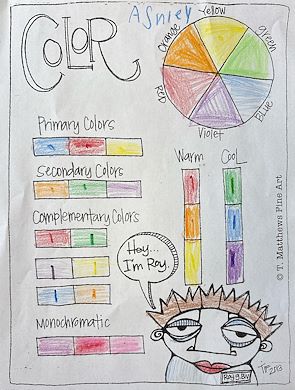 COLOR
Ashley
Yellow
Orange
green
Red
Blue
Violet
Primary Colors
Secondary Colors
Complementary Colors
Monochromatic
Warm
Cool
Hey...
I'm Roy.
© T. Matthews Fine Art
Roy G. Biv
TM 2013